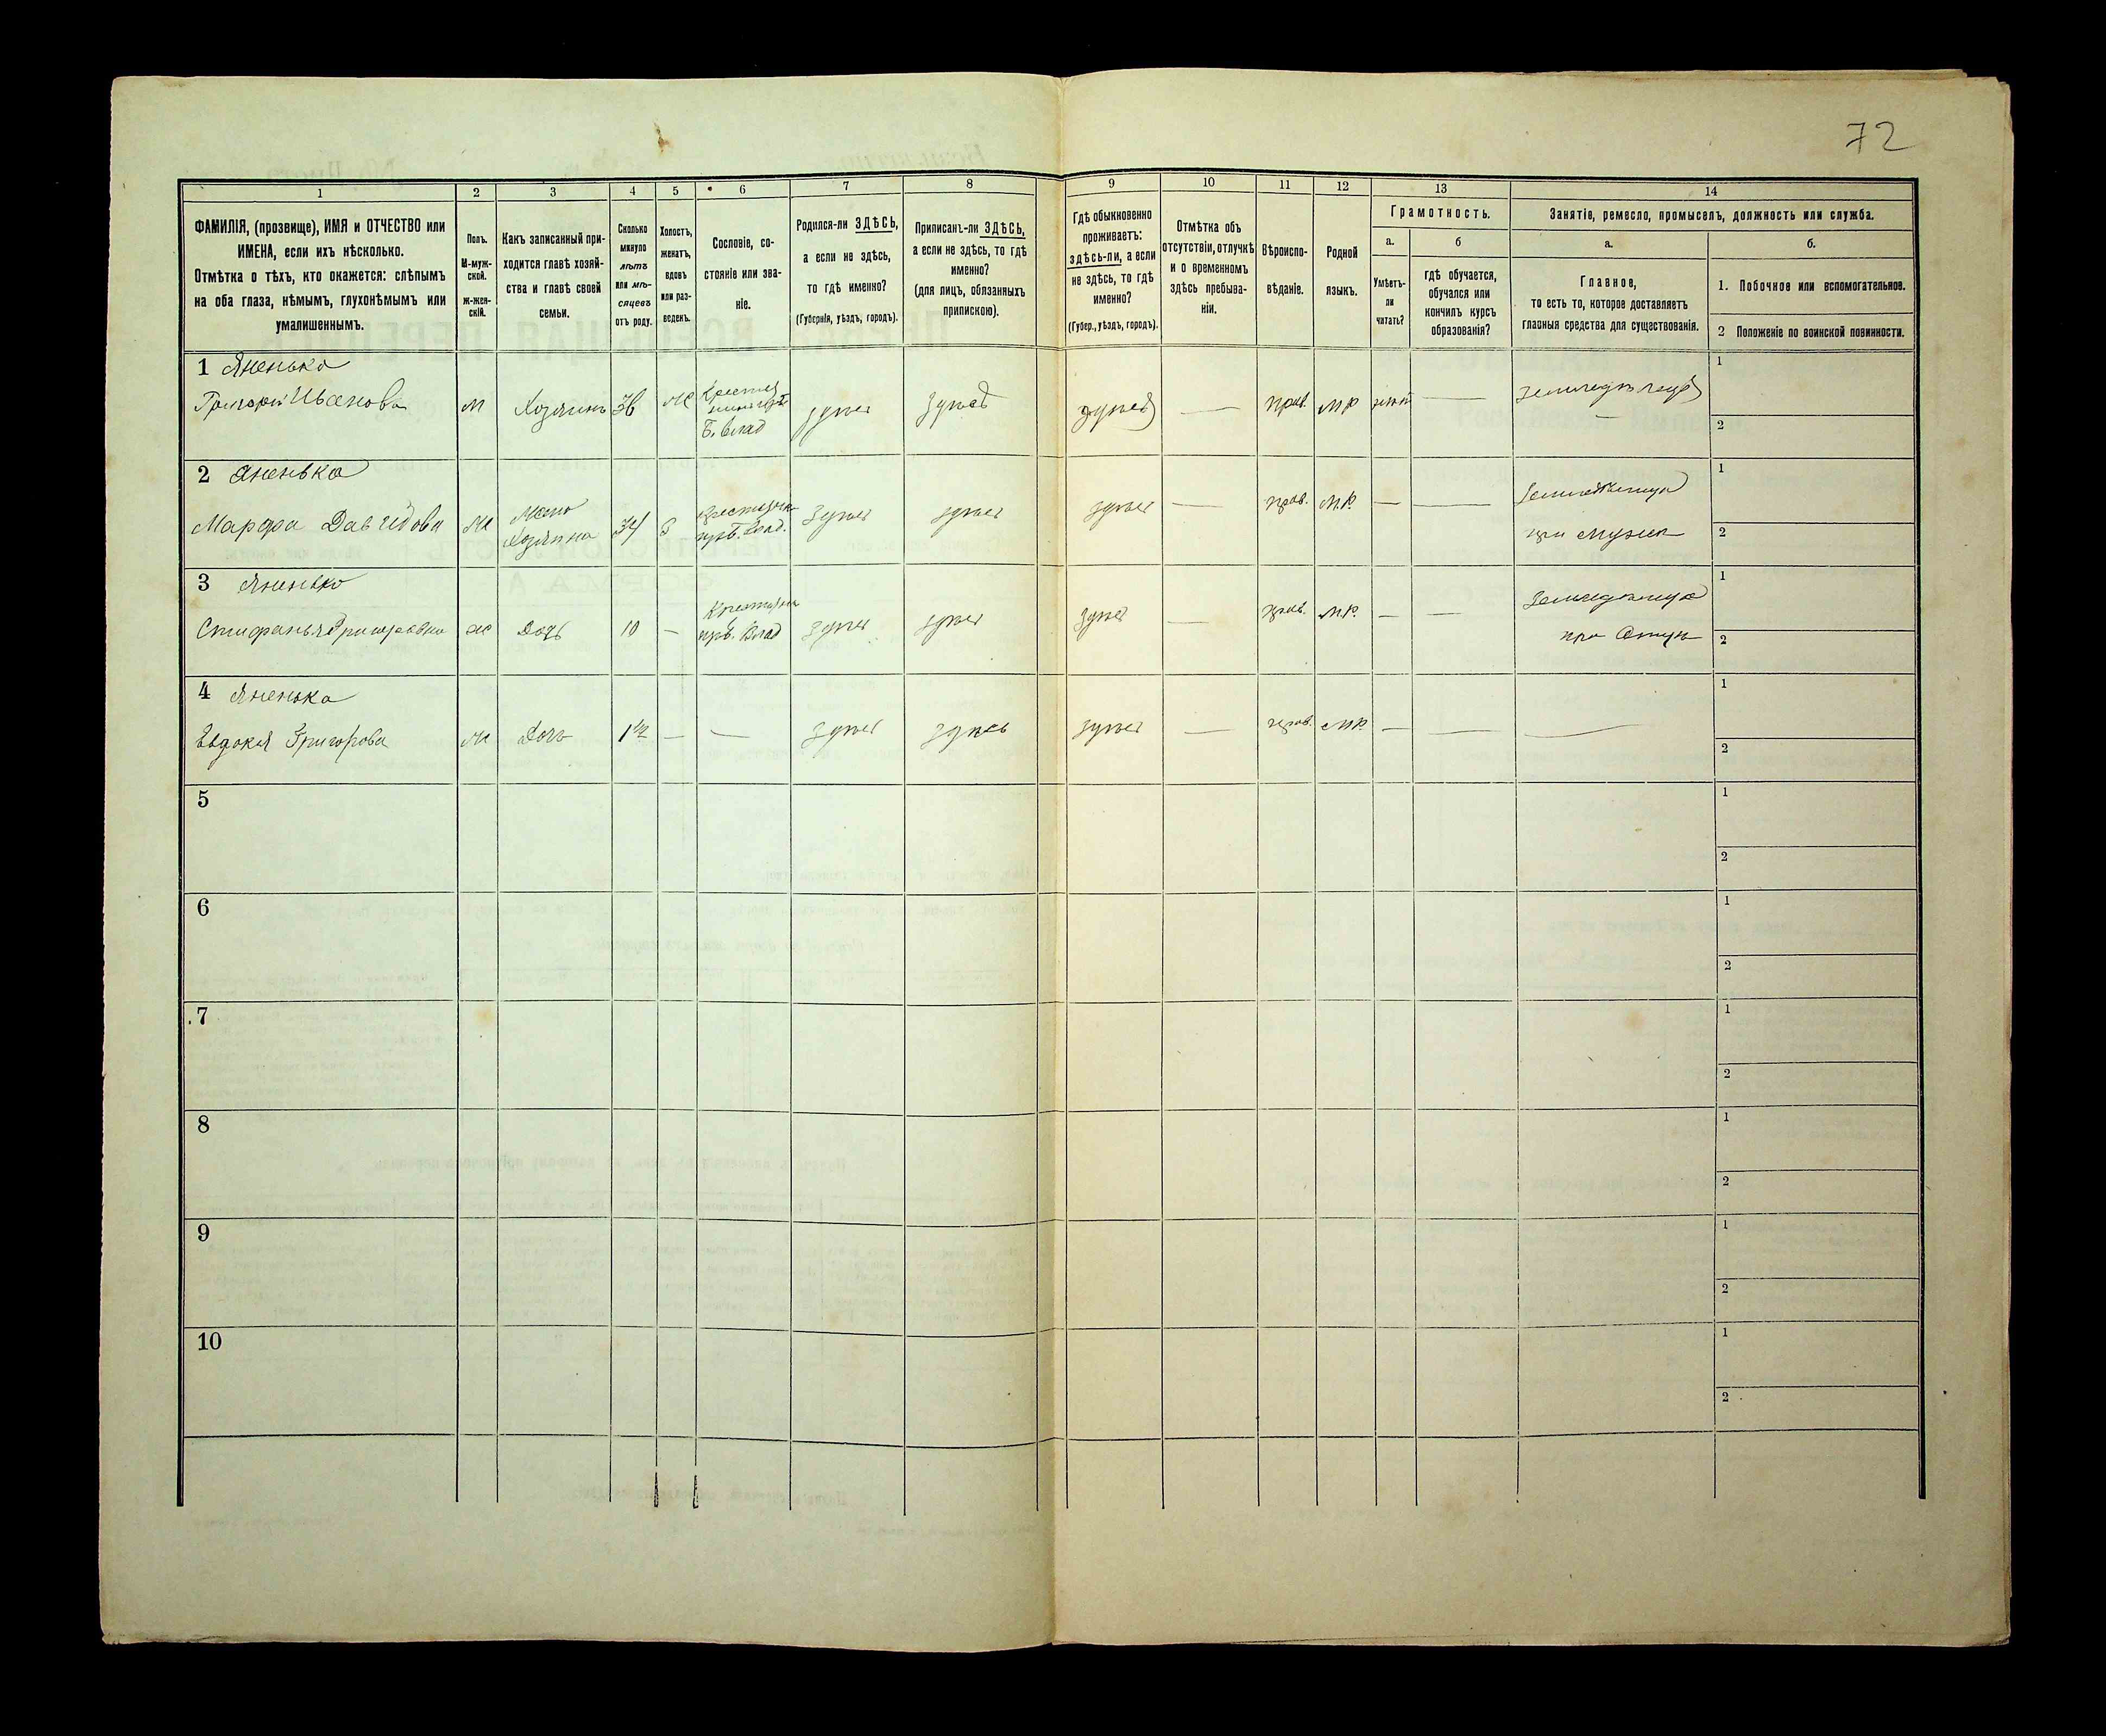 72
1
2
3
4
5
6
7
8
9
10
11
12
13
14
ФАМИЛІЯ, (прозвище), ИМЯ и ОТЧЕСТВО или
ИМЕНА, если ихъ нѣсколько.
Отмѣтка о тѣхъ, кто окажется: слѣпымъ
на оба глаза, нѣмымъ, глухонѣмымъ или
умалишеннымъ.
Полъ.
М-муж-
ской.
Ж-жен-
скій.
Какъ записанный при-
ходится главѣ хозяй-
ства и главѣ своей
семьи.
Сколько
минуло
лѣтъ
или мѣ-
сяцевъ
отъ роду.
Холостъ,
женатъ,
вдовъ
или раз-
веденъ.
Сословіе, со-
стояніе или зва-
ніе.
Родился-ли ЗДѢСЬ,
а если не здѣсь,
то гдѣ именно?
(Губернія, уѣздъ, городъ).
Приписанъ-ли ЗДѢСЬ,
а если не здѣсь, то гдѣ
именно?
(для лицъ, обязанныхъ
припискою).
Гдѣ обыкновенно
проживаетъ:
здѣсь-ли, а если
не здѣсь, то гдѣ
именно?
(Губер., уѣздъ, городъ).
Отмѣтка объ
отсутствіи, отлучкѣ
и о временномъ
здѣсь пребыва-
ніи.
Вѣроиспо-
вѣданіе.
Родной
языкъ.
Грамотность.
а.
Умѣетъ-
ли
читать?
б
гдѣ обучается,
обучался или
кончилъ курсъ
образованія?
Занятіе, ремесло, промыселъ, должность или служба.
а.
Главное,
то есть то, которое доставляетъ
главныя средства для существованія.
б.
1. Побочное или вспомогательное.
2 Положеніе по воинской повинности.
1 Яненько
Григорій Иванова М Хозяинъ 36 Ж
Б. Влад здѣсь здѣсь здѣсь — прав. М.Р. — 
1
2
2 Яненька
Марфа Давидова Ж
Хозяина 34 З
прв. Влад. здѣсь здѣсь здѣсь — прав. М.Р. — —
1
2
3 Яненько
Ж Дочь 10 —
прв. Влад здѣсь здѣсь здѣсь — прав. М.Р. — —
при Отцѣ
1
2
4 Яненька
Евдокия Григорова Ж Дочь 1 1/2 — — здѣсь здѣсь здѣсь — прав. М.Р. — — —
1
2
5
1
2
6
1
2
7
1
2
8
1
2
9
1
2
10
1
2